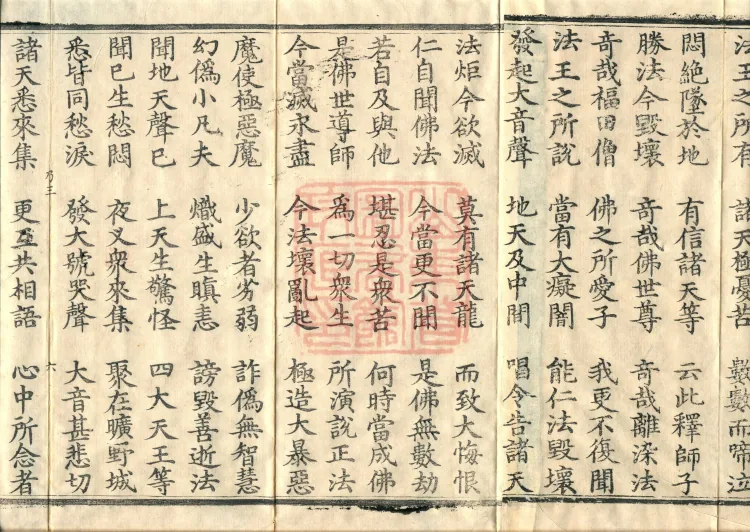 法王之所有 諸天極憂苦 數數而啼泣
悶絶墜於地 有信諸天等 云此釋師子
勝法今毀壞 奇哉佛世尊 奇哉離染法
奇哉福田僧 佛之所愛子 我更不復聞
法王之所説 當有大癡闇 能仁法毀壞
發起大音聲 地天及中間 唱令告諸天
法炬今欲滅 莫有諸天龍 而致大悔恨
仁自聞佛法 今當更不聞 是佛無數劫
若自及與他 堪忍是衆苦 何時當成佛
是佛世導師 爲一切衆生 所演説正法
今當滅永盡 今法壞亂起 極造大暴惡
魔使極惡魔 少欲者劣弱 詐僞無智慧
幻僞小凡夫 熾盛生瞋恚 謗毀善逝法
聞地天聲已 上天生驚怪 四大天王等
聞已生愁悶 夜叉衆來集 聚在曠野城
悉皆同愁淚 發大號哭聲 大音甚悲切
乃三 六
諸天悉來集 更互共相語 心中所念者